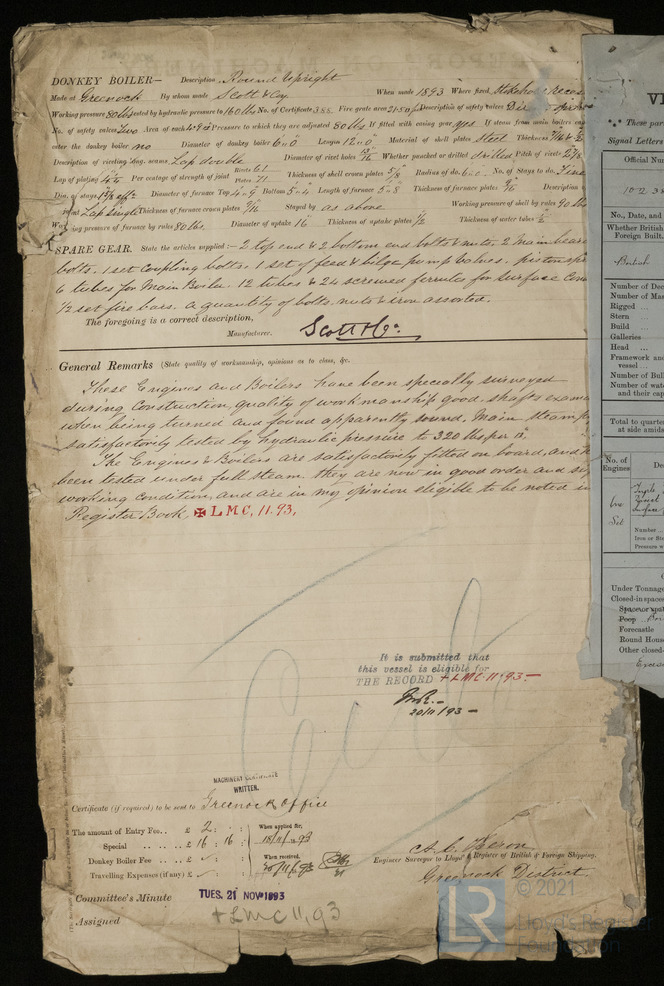 DONKEY BOILER— Description Round Upright
Made at Greenock By whom made Scott & Coy When made 1893 Where fixed Stokehole recess
Working pressure 80 lbs tested by hydraulic pressure to 160 lbs No. of Certificate 388 Fire grate area Description of safety valves
No. of safety valves Two Area of each Pressure to which they are adjusted 80 lbs If fitted with easing gear yes If steam from main boilers can
enter the donkey boiler no Diameter of donkey boiler 6-0 Length 12-0 Material of shell plates Steel Thickness
Description of riveting long. seams Lap double Diameter of rivet holes 13/16 Whether punched or drilled drilled Pitch of rivets 2 7/8
Lap of plating Per centage of strength of joint Rivets 61 Plates 71 Thickness of shell crown plates 5/8 Radius of do. 6-0 No. of Stays to do.
Dia. of stays Diameter of furnace Top 4-9 Bottom 5-4 Length of furnace 5-8 Thickness of furnace plates 9/16 Description of
joint Lap Single Thickness of furnace crown plates 9/16 Stayed by as above Working pressure of shell by rules 90 lbs
Working pressure of furnace by rules 80 lbs. Diameter of uptake 16 Thickness of uptake plates 1/2 Thickness of water tubes
SPARE GEAR. State the articles supplied:— 2 top end & 2 bottom end bolts & nuts. 2 Main bear
bolts. 1 set Coupling bolts. 1 set of feed & bilge pump valves. piston
6 tubes for Main Boiler. 12 tubes & 24 screwed ferrules for Surface Con
1/2 set fire bars. A quantity of bolts, nuts & iron assorted.
The foregoing is a correct description,
Manufacturer. Scott & Co.
General Remarks (State quality of workmanship, opinions as to class, &c.
These Engines and Boilers have been specially surveyed
during construction, quality of workmanship good. shafts exam
when being turned and found apparently sound. Main steam
satisfactorily tested by hydraulic pressure to 320 lbs per □".
The Engines & Boilers are satisfactorily fitted on board, and
been tested under full steam. they are now in good order and
working condition, and are in my opinion eligible to be noted in
Register Book, ✠ L.M.C. 11.93.
It is submitted that
this vessel is eligible for
THE RECORD + LMC 11.93 —
20/11/93 —
MACHINERY CERTIFICATE
WRITTEN.
Certificate (if required) to be sent to Greenock Office
The amount of Entry Fee.. £ 2 : When applied for,
Special .. £ 16 : 16 : 18/11/93
Donkey Boiler Fee .. £ When received,
Travelling Expenses (if any) £
Engineer Surveyor to Lloyd's Register of British & Foreign Shipping.
Greenock District
Committee's Minute TUES. 21 NOV 1893
Assigned + LMC 11,93
Official Num
Signal Letters
No., Date, and
Whether British
Foreign Built.
British
Number of Dec
Number of Mas
Rigged ...
Stern ...
Build ...
Galleries
Head ...
Framework and
vessel ...
Number of Bul
Number of wate
and their cap
Total to quarte
at side amids
No. of
Engines
Number
Iron or Ste
Pressure w
Under Tonnage
Closed-in spaces
Poop
Forecastle
Round House
Other closed-
LR
© 2021
Lloyd's Register
Foundation